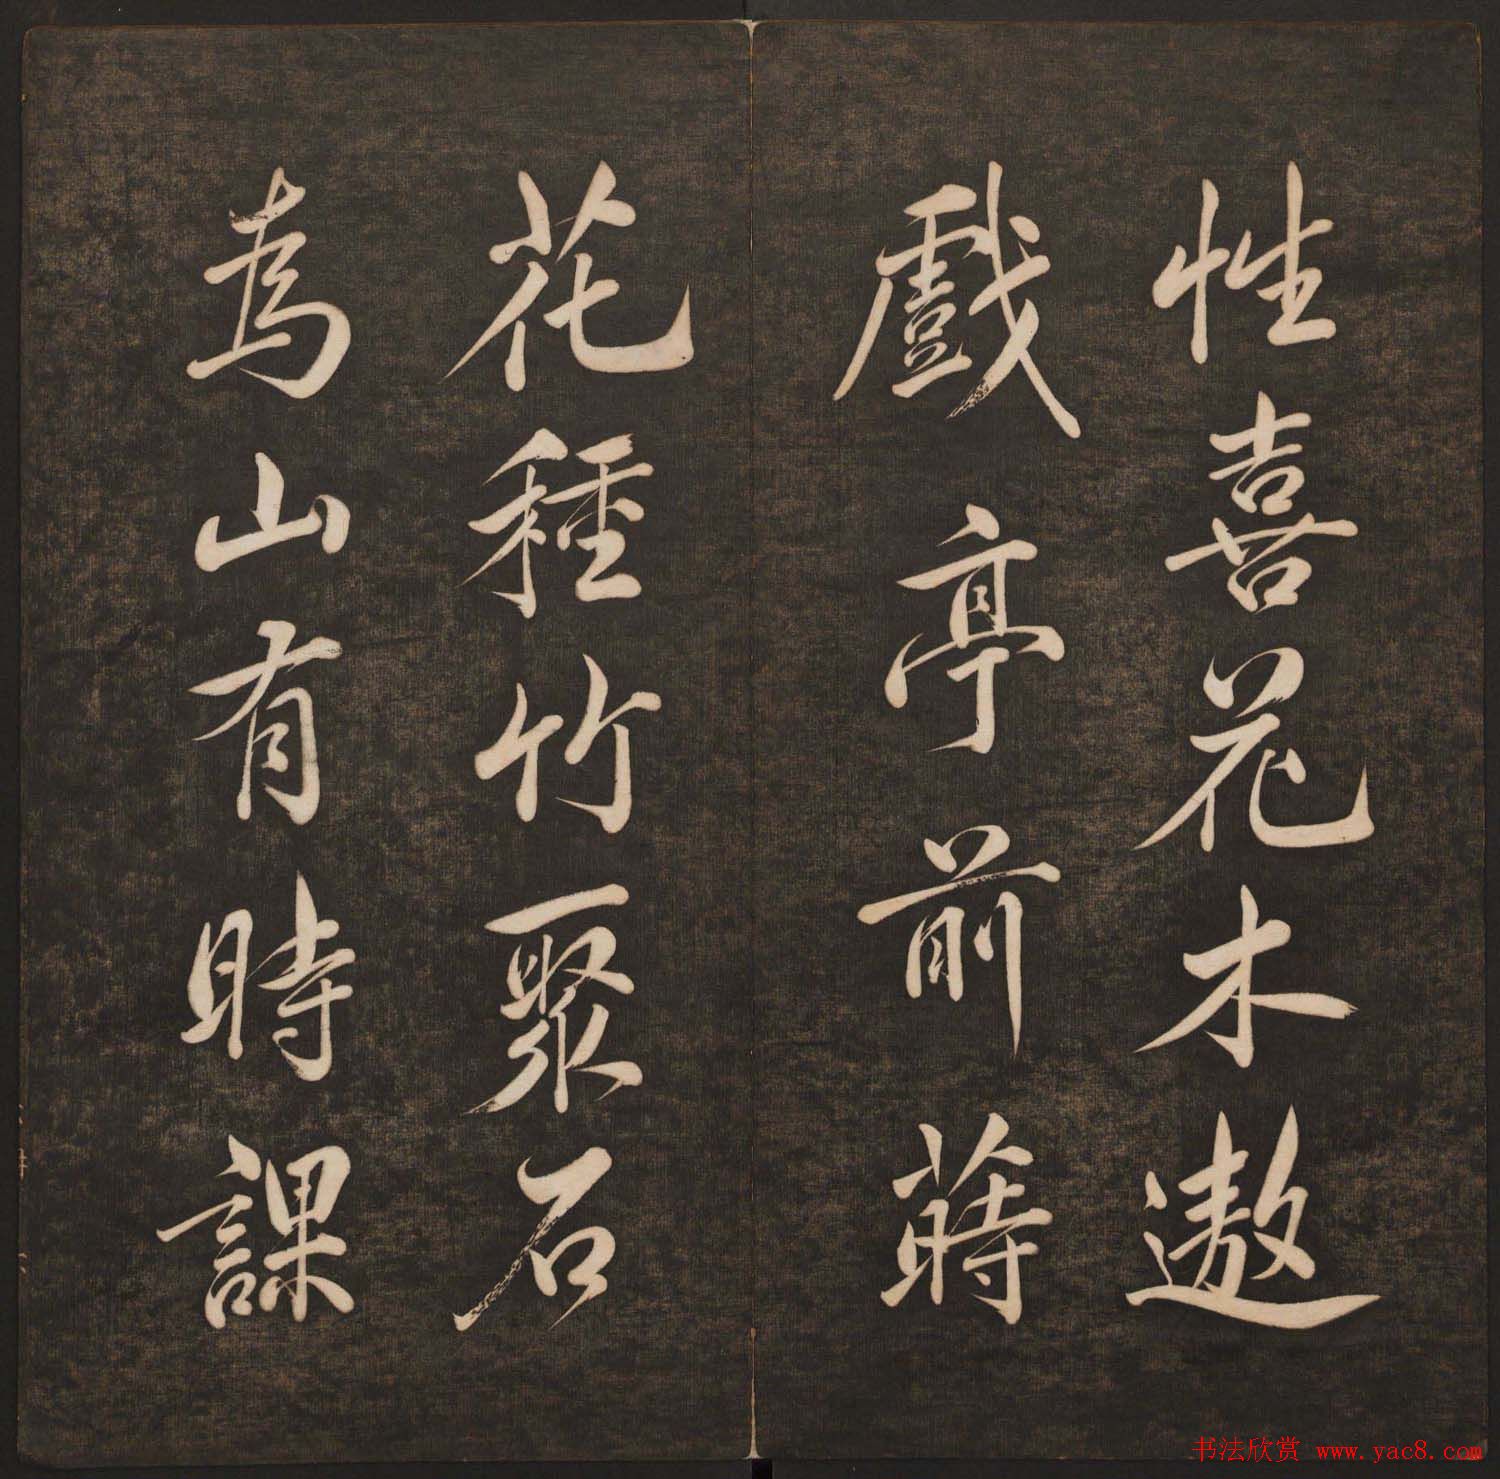 性喜花木遨
戲亭前蒔
花種竹聚石
為山有時課
书法欣赏 www.yac8.com